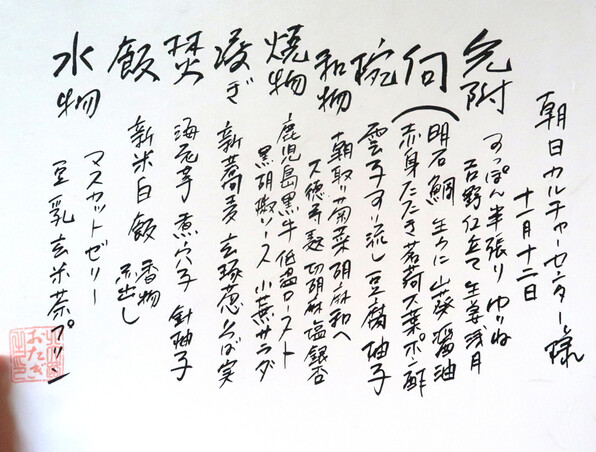 朝日カルチャーセンター様
十一月十二日
先附
すっぽん半張り ゆりね
吉野仕立て 生姜 浅月
向
明石鯛 生うに 山葵 醤油
赤身たたき 茗荷 大葉 ポン酢
椀
雲子すり流し 豆腐 柚子
和物
朝取り菊菜胡麻和へ
大徳寺麩 切胡麻 塩銀杏
焼物
鹿児島黒牛低温ロースト
黒胡椒ソース 小蕪サラダ
凌ぎ
新蕎麦 玄琢葱 そば実
焚
海老芋 煮穴子 針柚子
飯
新米白飯 香物
煮出し
水物
マスカットゼリー
豆乳玄米茶プリン
おたぎ